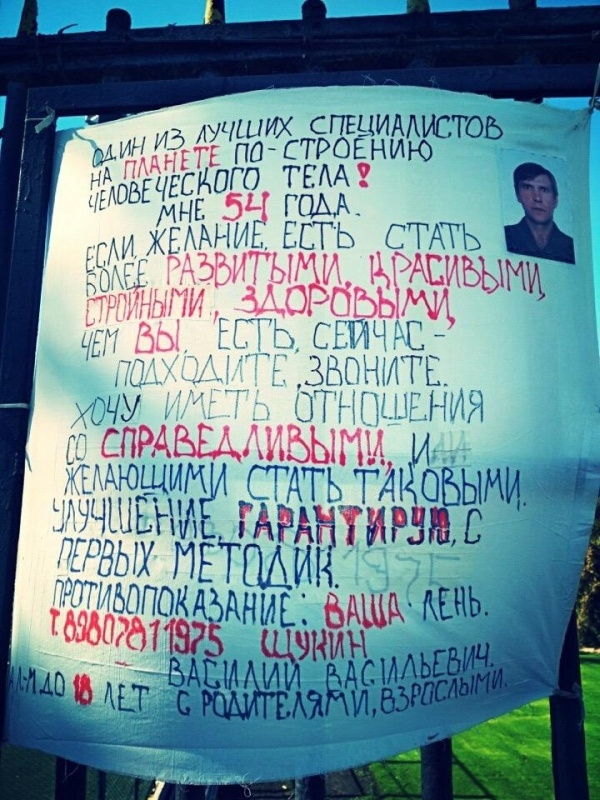 ОДИН ИЗ ЛУЧШИХ СПЕЦИАЛИСТОВ
НА ПЛАНЕТЕ ПО-СТРОЕНИЮ
ЧЕЛОВЕЧЕСКОГО ТЕЛА!
МНЕ 54 ГОДА.
ЕСЛИ, ЖЕЛАНИЕ, ЕСТЬ СТАТЬ
БОЛЕЕ РАЗВИТЫМИ, КРАСИВЫМИ,
СТРОЙНЫМИ, ЗДОРОВЫМИ,
ЧЕМ ВЫ ЕСТЬ, СЕЙЧАС-
ПОДХОДИТЕ, ЗВОНИТЕ.
ХОЧУ ИМЕТЬ ОТНОШЕНИЯ
СО СПРАВЕДЛИВЫМИ, ИЛИ
ЖЕЛАЮЩИМИ СТАТЬ ТАКОВЫМИ.
УЛУЧШЕНИЕ, ГАРАНТИРУЮ, С
ПЕРВЫХ МЕТОДИК.
ПРОТИВОПОКАЗАНИЕ: ВАША ЛЕНЬ.
Т.89807811975 ЩУКИН
ВАСИЛИЙ ВАСИЛЬЕВИЧ.
ДО 18 ЛЕТ С РОДИТЕЛЯМИ, ВЗРОСЛЫМИ.